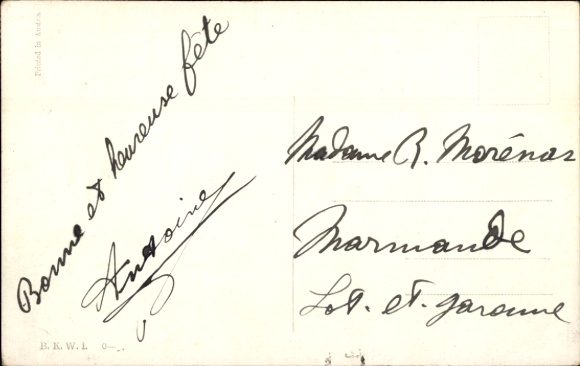 Printed in Austria
Bonne et heureuse fête
Antoine
Madame R. Morénas
Marmande
Lot. et. garonne
B. K. W. I.